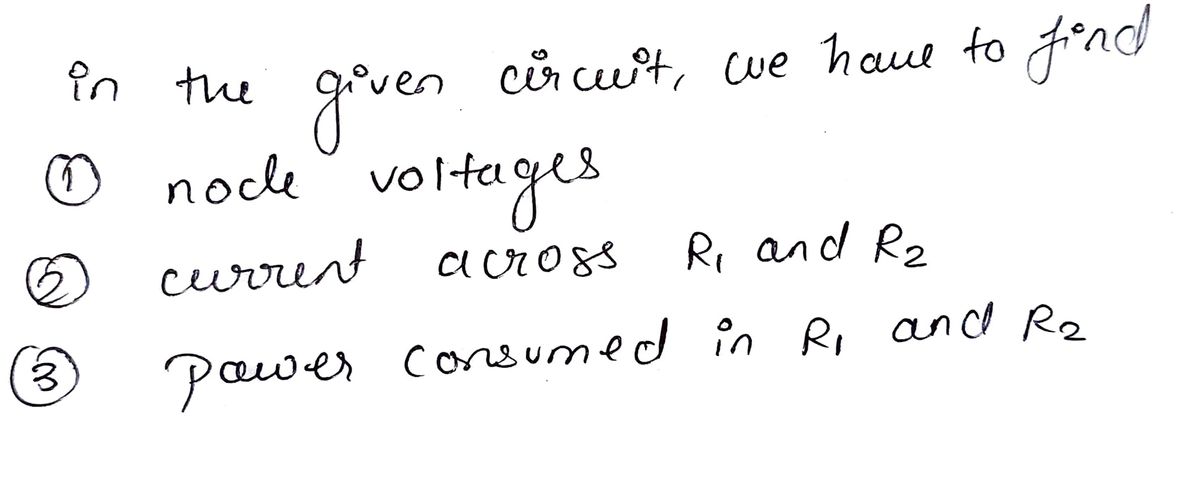 in the given circuit, we have to find
① node voltages
② current across R₁ and R₂
③ power consumed in R₁ and R₂